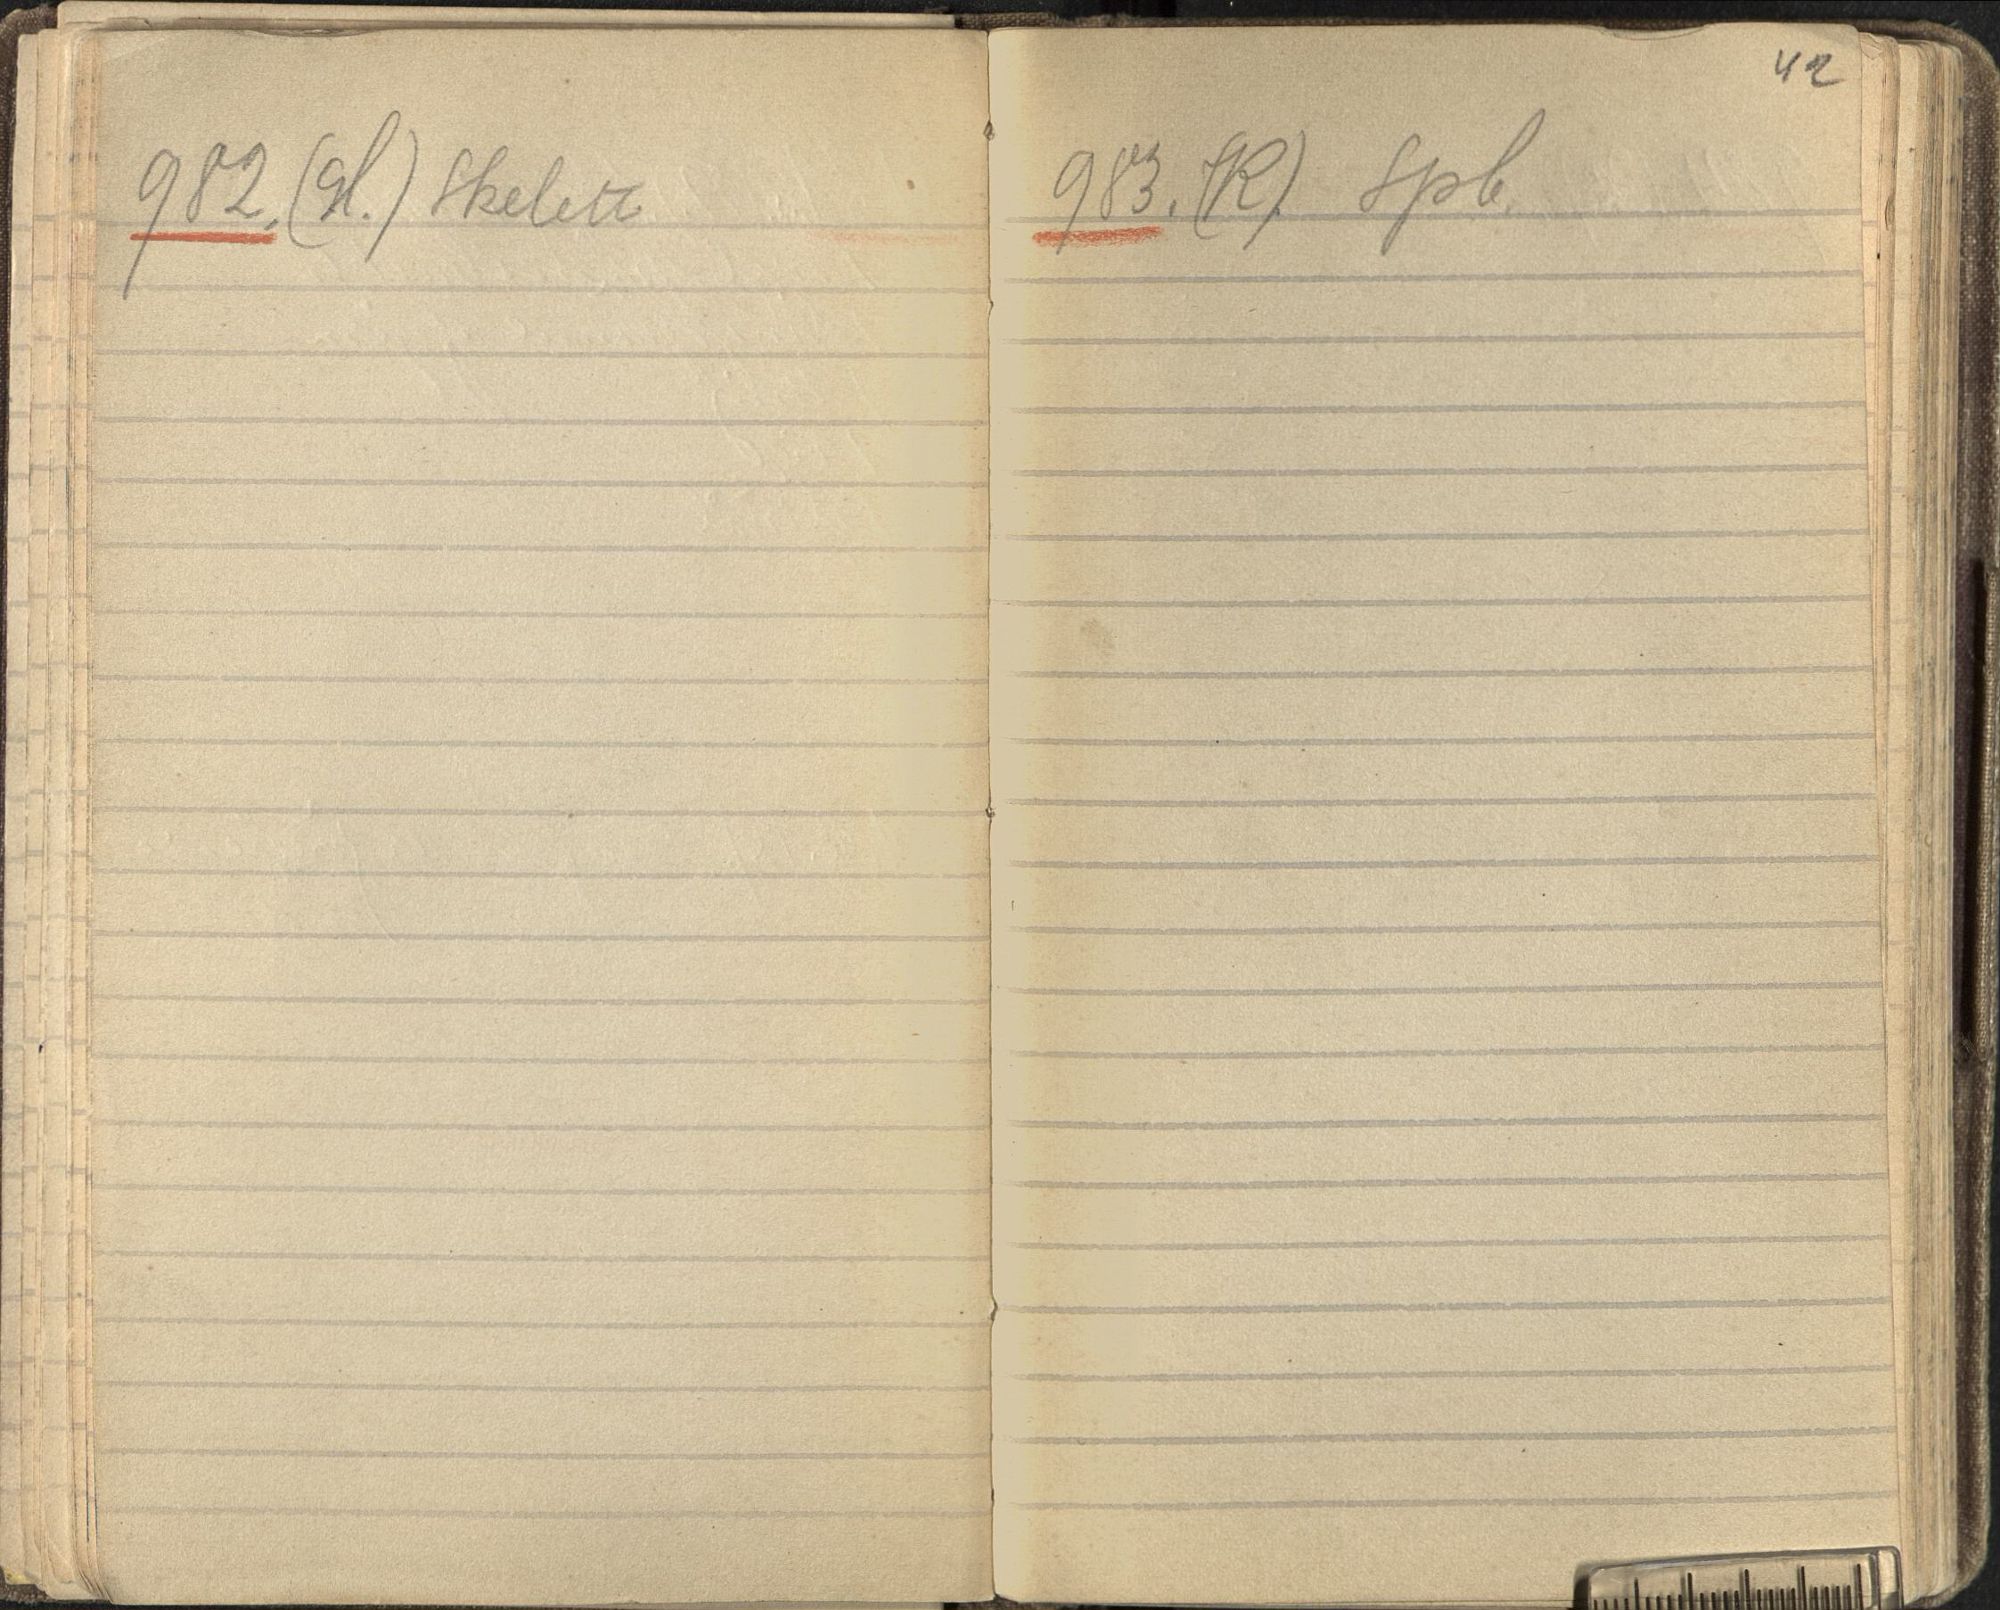 982. (Gl.) Skelett
42
983. (K) Spb.